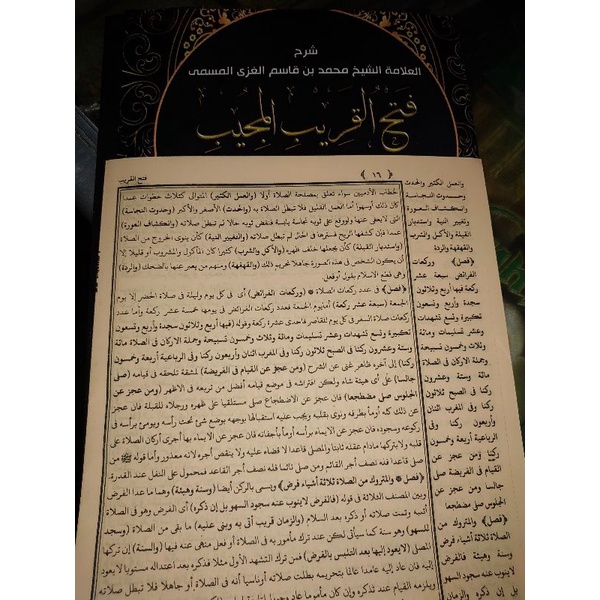 شرح
العلامة الشيخ محمد بن قاسم الغزى المسمى
فتح القريب المجيب
﴿ ١٦ ﴾
فتح القريب
لخطاب الآدميين سواء تعلق بمصلحة الصلاة أولا (والعمل الكثير) المتوالى كثلاث خطوات عمدا
كان ذلك أوسهوا أما العمل القليل فلا تبطل الصلاة به (والحدث) الأصغر والأكبر (وحدوث النجاسة)
التى لايعفى عنها ولو وقع على ثوبه نجاسة يابسة فنفض ثوبه حالا لم تبطل صلاته (وانكشاف العورة)
عمدا فإن كشفها الريح فسترها فى الحال لم تبطل صلاته (والتغيير النية) كأن ينوى الخروج من الصلاة
(واستدبار القبلة) كأن يجعلها خلف ظهره (والأكل والشرب) كثيرا كان المأكول والمشروب أو قليلا إلا
أن يكون الشخص فى هذه الصورة جاهلا تحريم ذلك (والقهقهة) ومنهم من يعبر عنها بالضحك (والردة)
وهى قطع الإسلام بقول أوفعل.
﴿فصل﴾ فى عدد ركعات الصلاة * (وركعات الفرائض) أى فى كل يوم وليلة فى صلاة الحضر إلا يوم
الجمعة (سبعة عشر ركعة) أمايوم الجمعة فعدد ركعات الفرائض فى يومها خمسة عشر ركعة وأما عدد
ركعات صلاة السفر فى كل يوم للقاصر فاحدى عشرة ركعة وقوله (فيها أربع وثلاثون سجدة وأربع وتسعون
تكبيرة وتسع تشهدات وعشر تسليمات ومائة وثلاث وخمسون تسبيحة وجملة الأركان فى الصلاة مائة
وستة وعشرون ركنا فى الصبح ثلاثون ركنا وفى المغرب اثنان وأربعون ركنا وفى الرباعية أربعة وخمسون
ركنا) إلى آخره ظاهر غنى عن الشرح (ومن عجز عن القيام فى الفريضة) لمشقة تلحقه فى قيامه (صلى
جالسا) على أى هيئة شاء ولكن افتراشه فى موضع قيامه أفضل من تربعه فى الأظهر (ومن عجز عن
الجلوس صلى مضطجعا) فإن عجز عن الاضطجاع صلى مستلقيا على ظهره ورجلاه للقبلة فان عجز
عن ذلك كله أومأ بطرفه ونوى بقلبه ويجب عليه استقبالها بوجهه بوضع شئ تحت رأسه ويومئ برأسه فى
ركوعه وسجوده فان عجز عن الايماء برأسه أومأ بأجفانه فان عجز عن الايماء بها أجرى أركان الصلاة على
قلبه ولايتركها مادام عقله ثابتا والمصلى قاعدا لا قضاء عليه ولا ينقص أجره لانه معذور وأما قوله ﷺ من
صلى قاعدا فله نصف أجر القائم ومن صلى نائما فله نصف أجر القاعد فمحمول على النفل عند القدرة.
﴿فصل * والمتروك من الصلاة ثلاثة أشياء فرض﴾ ويسمى بالركن أيضا (وسنة وهيئة) وهما ما عدا الفرض
وبين المصنف الثلاثة فى قوله (فالفرض لاينوب عنه سجود السهو بل إن ذكره) أى الفرض وهو فى
أتى به وتمت صلاته أو ذكره بعد السلام (والزمان قريب أتى به وبنى عليه) ما بقى من الصلاة (وسجد
للسهو) وهو سنة كما سيأتى لكن عند ترك مأمور به فى الصلاة أو فعل منهى عنه فيها (والسنة) إن تركها
المصلى (لايعود إليها بعد التلبس بالفرض) فمن ترك التشهد الأول مثلا فذكره بعد اعتداله مستويا لايعود
إليه فإن عاد إليه عامدا عالما بتحريمه بطلت صلاته أوناسيا أنه فى الصلاة أو جاهلا فلا تبطل صلاته
ويلزمه القيام عند تذكره وإن كان مأموما عاد وجوبا
والعمل الكثير والحدث
وحدوث النجاسة
وانكشاف العورة
وتغيير النية واستدبار
القبلة والأكل والشرب
والقهقهة والردة
﴿فصل﴾ وركعات
الفرائض سبعة عشر
ركعة فيها أربع وثلاثون
سجدة وأربع وتسعون
تكبيرة وتسع تشهدات
وعشر تسليمات ومائة
وثلاث وخمسون تسبيحة
وجملة الاركان فى الصلاة
مائة وستة وعشرون
ركنا فى الصبح ثلاثون
ركنا وفى المغرب اثنان
وأربعون ركنا وفى
الرباعية أربعة وخمسون
ركنا ومن عجز عن
القيام فى الفريضة صلى
جالسا ومن عجز عن
الجلوس صلى مضطجعا
﴿فصل﴾ والمتروك من
الصلاة ثلاثة أشياء فرض
وسنة وهيئة فالفرض
لاينوب عنه سجود السهو
بل إن ذكره والزمان